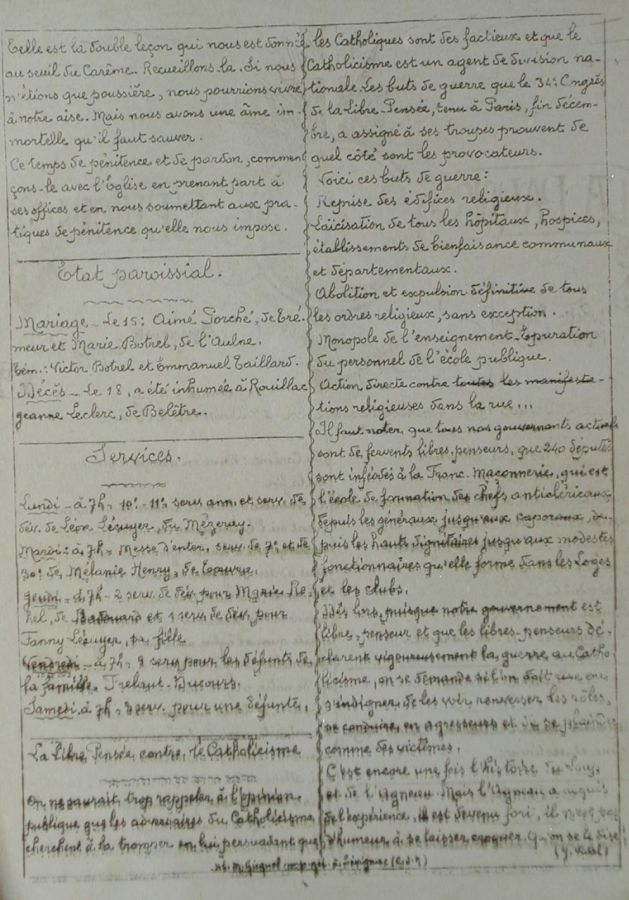 Telle est la double leçon qui nous est donnée
au seuil du Carême. Recueillons-la. Si nous
n'étions que poussière, nous pourrions vivre
à notre aise. Mais nous avons une âme im-
mortelle qu'il faut sauver.
Ce temps de pénitence et de pardon, commen
çons-le avec l'Eglise en prenant part à
ses offices et en nous soumettant aux pra-
tiques de pénitence qu'elle nous impose.
Etat paroissial.
Mariage - Le 15: Aimé Porché, de Tré
meur et Marie Botrel, de l'Aulne.
Tém.: Victor Botrel et Emmanuel Gaillard.
Décès - Le 18, a été inhumée à Rouillac
Jeanne Leclerc, de Belêtre.
Services.
Lundi - à 7h - 10e - 11e serv. ann. et serv. de
dév. de Léon Lésuyer, du Mézeray.
Mardi: à 7h - Messe d'enter. serv. de 7e et de
30e de Mélanie Henry, de
Jeudi - à 7h - 2 serv. de dév. pour Marie Re
hel, de et 1 serv. de dév. pour
Fanny Lésuyer, sa fille
Vendredi - à 7h - 2 serv. pour les défunts de
la famille Trelaut-
Samedi à 7h - 3 serv. pour une défunte.
La Libre Pensée contre le Catholicisme
On ne saurait trop rappeler à l'opinion
publique que les adversaires du Catholicisme
cherchent à la tromper en lui persuadant que
les Catholiques sont des factieux et que le
Catholicisme est un agent de division na-
tionale. Les buts de guerre que le 34e Congrès
de la Libre Pensée, tenu à Paris, fin décem-
bre, a assigné à ses troupes prouvent de
quel côté sont les provocateurs.
Voici ces buts de guerre:
Reprise des édifices religieux.
Laïcisation de tous les hôpitaux, hospices,
établissements de bienfaisance communaux
et départementaux.
Abolition et expulsion définitive de tous
les ordres religieux, sans exception.
Monopole de l'enseignement. Epuration
du personnel de l'école publique.
Action directe contre toutes les manifesta-
tions religieuses dans la rue...
Il faut noter, que tous nos gouvernants actuels
sont de fervents libres-penseurs, que 240 députés
sont inféodés à la Franc-Maçonnerie, qui est
l'école de formation des chefs anticléricaux
depuis les généraux jusqu'aux caporaux, de-
puis les hauts dignitaires jusqu'aux modestes
fonctionnaires qu'elle forme dans les Loges
et les clubs.
Dès lors, puisque notre gouvernement est
libre-penseur et que les libres-penseurs dé-
clarent vigoureusement la guerre au Catho-
licisme, on se demande si l'on doit rire ou
s'indigner de les voir renverser les rôles,
se conduire en agresseurs et
comme des victimes.
C'est encore une fois l'histoire du Loup
et de l'Agneau. Mais l'Agneau a acquis
de l'expérience, il est devenu fort, il n'est pas
d'humeur à se laisser croquer. Qu'on se le dise!